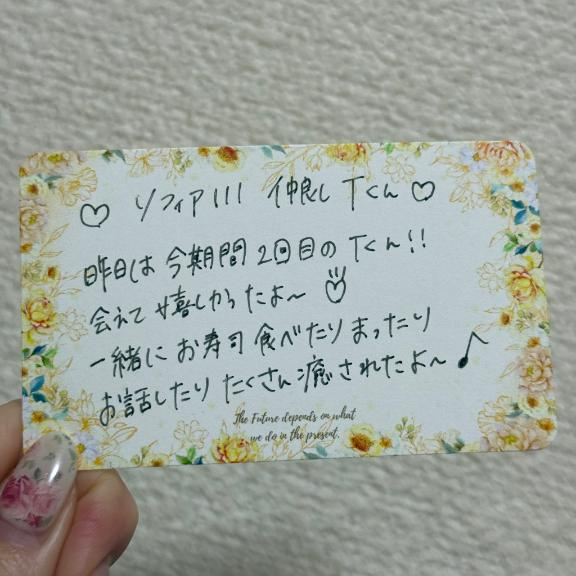 ♡ ソフィア111 仲良し Tくん ♡
昨日は 今期間 2回目の Tくん!!
会えて 嬉しかったよ〜
一緒に お寿司 食べたり まったり
お話したり たくさん癒されたよ〜 ♪
The Future depends on what
we do in the present.